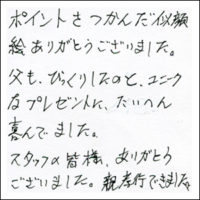 ポイントをつかんだ似顔
絵ありがとうございました。
父も、びっくりしたのと、ユニーク
なプレゼントに、だいへん
喜んでました。
スタッフの皆様、ありがとう
ございました。親孝行できました。